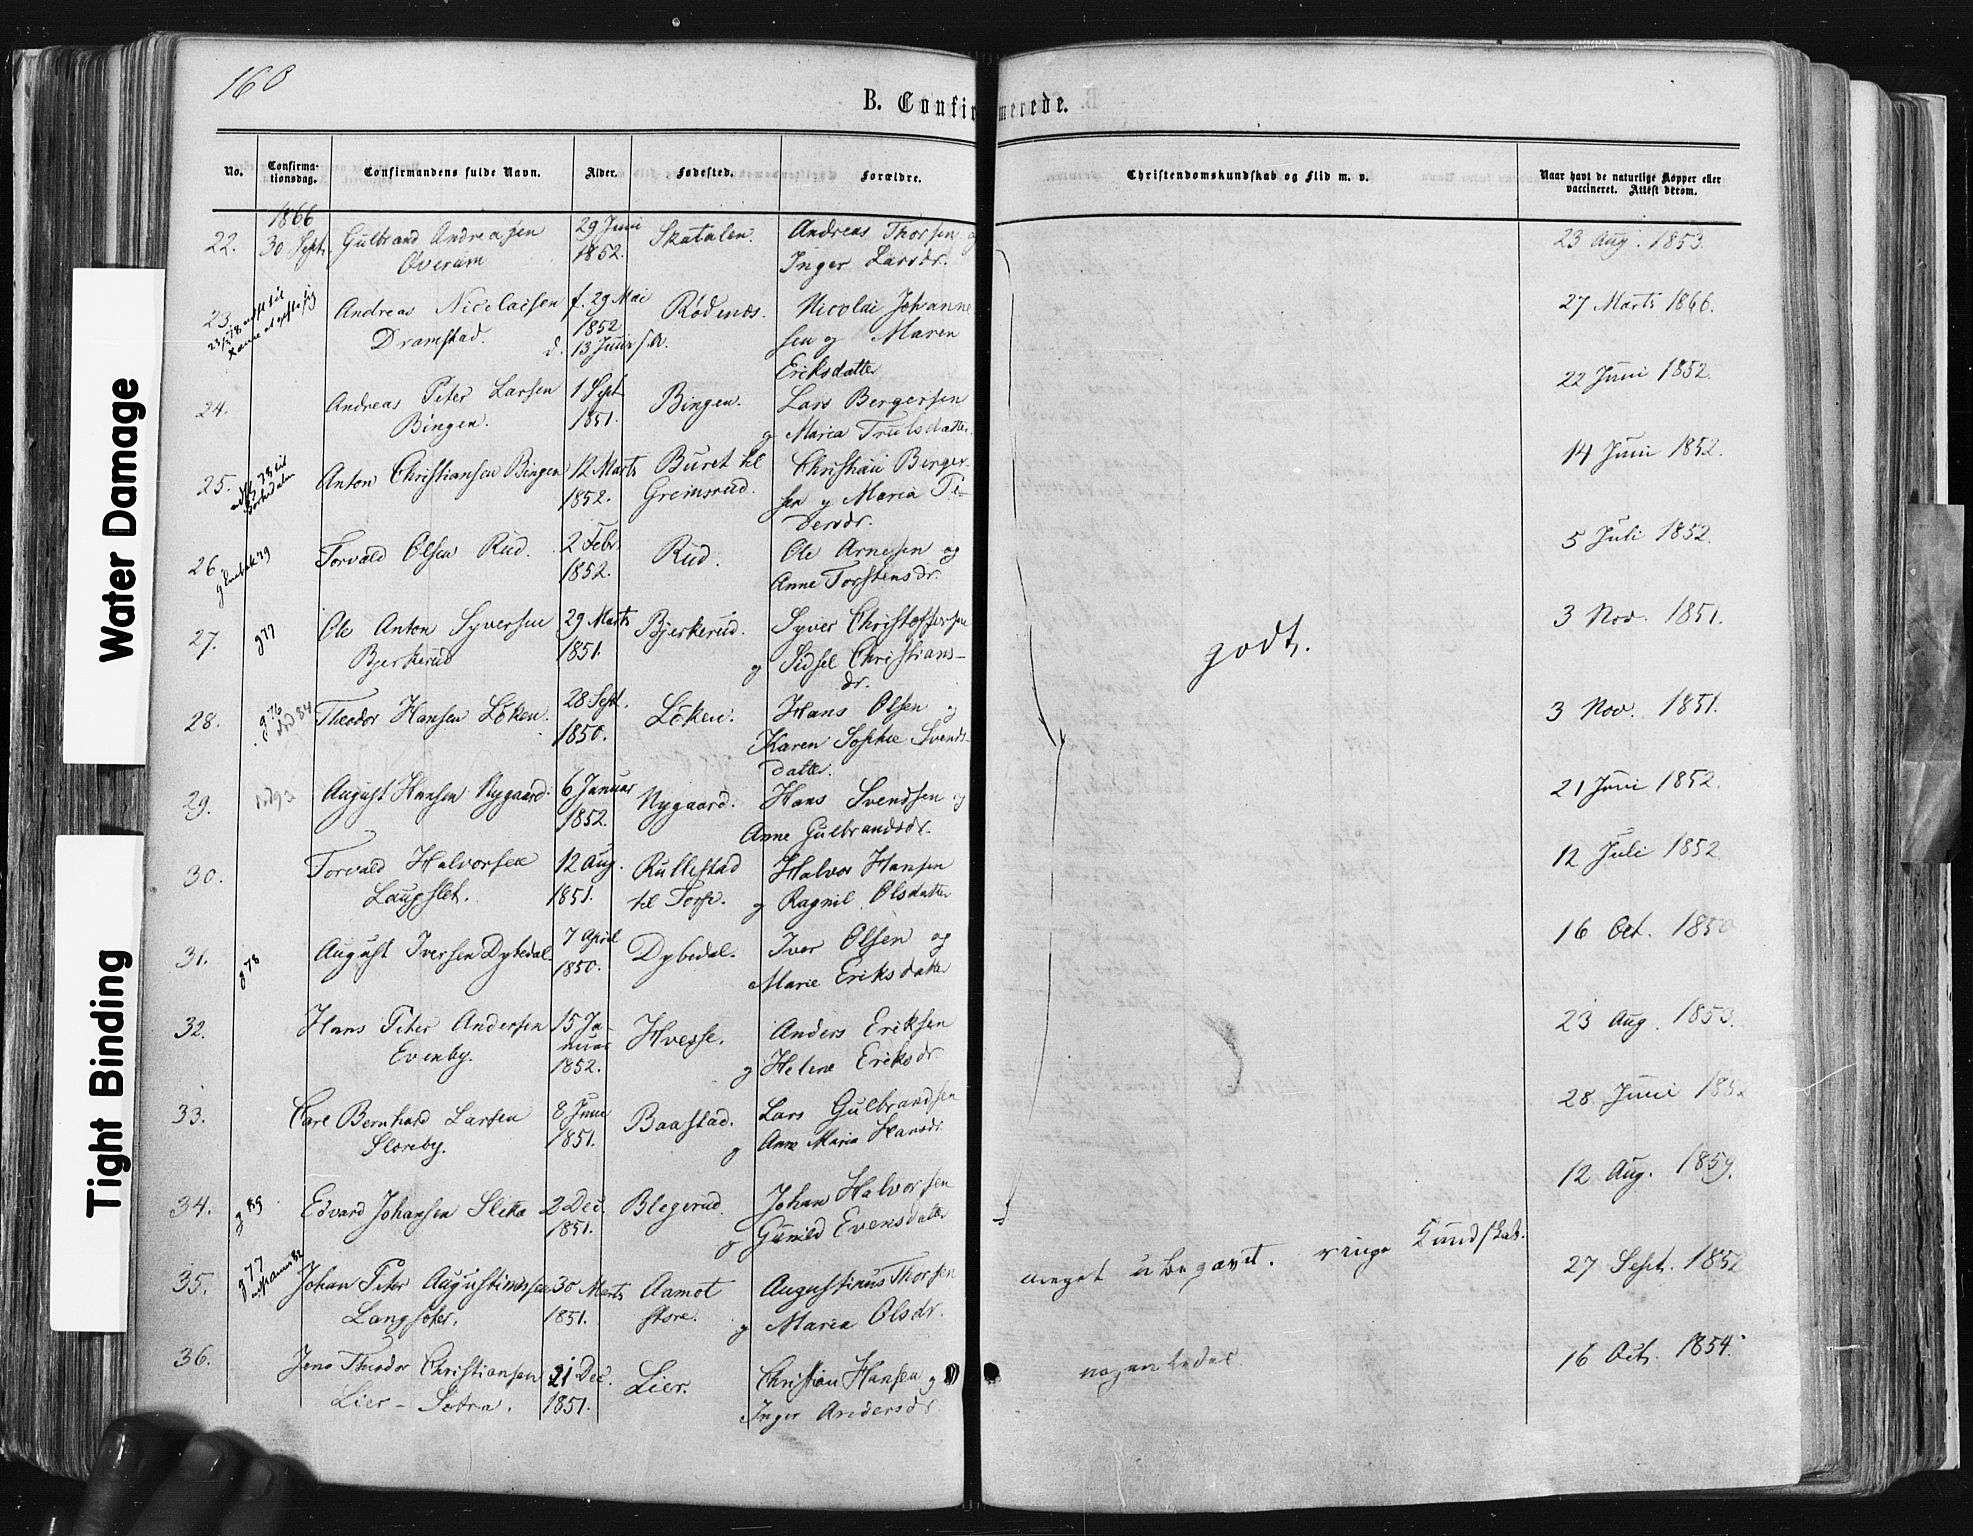 160
B. Confirmerede.
No.
Confirma-
tionsdag.
Confirmandens fulde Navn.
Alder.
Fødested.
Forældre.
Christendomskundskab og Flid m. v.
Naar havt de naturlige Kopper eller
vaccineret. Attest derom.
1866
22. 30 Sept. Gulbrand Andreasen 29 Juni Skatalen. Andreas Thorsen og 23 Aug. 1853.
Øverum 1852. Inger Larsdr.
23. Andreas Nicolaisen f. 29 Mai Rødenes. Nicolai Johanne 27 Marts 1866.
Dramstad. 1852 sen og Maren
d. 13 Juni s. A. Eriksdatter
24. Andreas Peter Larsen 1 Sept Bingen. Lars Bergersen 22 Juni 1852.
Bingen. 1851. og Maria Trulsdatter.
25. Anton Christiansen Bingen 12 Marts Buret til Christian Berger- 14 Juni 1852.
1852. Greimsrud. sen og Maria Pe-
dersdr.
26. Torvald Olsen Rud. 2 Febr. Rud. Ole Arnesen og 5 Juli 1852.
1852. Anne Torstensdr.
27. g 77 Ole Anton Syversen 29 Marts Bjerkerud. Syver Christoffersen 3 Nov. 1851.
Bjerkerud 1851. og Sidsel Christians-
dr.
godt.
28. g 76 Theodor Hansen Löken. 28 Sept. Löken. Hans Olsen og 3 Nov. 1851.
1850. Karen Sophie Svends-
datter.
29. August Hansen Nygaard. 6 Januar Nygaard. Hans Svendsen og 21 Juni 1852.
1852. Anne Gulbrandsdr.
30. Torvald Halvorsen 12 Aug. Rullestad Halvor Hansen 12 Juli 1852
Laupslet. 1851. til Torp. og Ragnil Olsdatter
31. g 78 August Iversen Dybedal 7 April Dybedal. Iver Olsen og 16 Oct. 1850
1850. Marie Eriksdatter
32. Hans Peter Andersen 15 Ja- Hvesse. Anders Eriksen 23 Aug. 1853.
Evenby. nuar og Helene Eriksdr
1852.
33. Carl Bernhard Larsen 8 Juni Baastad. Lars Gulbrandsen 28 Juni 185
Sloreby. 1851. og Anne Maria Hansdr
34. g 89 Edvard Johansen Sletta 2 Dec. Blegerud. Johan Halvorsen 12 Aug. 1859.
1851. og Gunild Evensdatter
35. g 77 Johan Peter Augustinussen 30 Marts Aamot Augustinus Thorsen meget ubegavet. ringe Kundskab. 27 Sept. 1852
Langseter. 1851. store. og Maria Olsdr.
36. Jens Theodor Christiansen 21 Dec. Lier. Christian Hansen og nogenledes. 16 Oct. 1854.
Lier - Sætra. 1851. Inger Andersdr.
Water Damage
Tight Binding